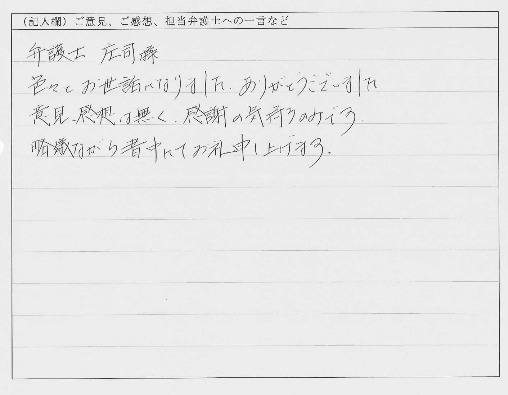 （記入欄）ご意見、ご感想、担当弁護士への一言など
弁護士 庄司様
色々とお世話になりました。ありがとうございました
意見、感想は無く、感謝の気持ちのみです
略儀ながら書中にてお礼申し上げます。